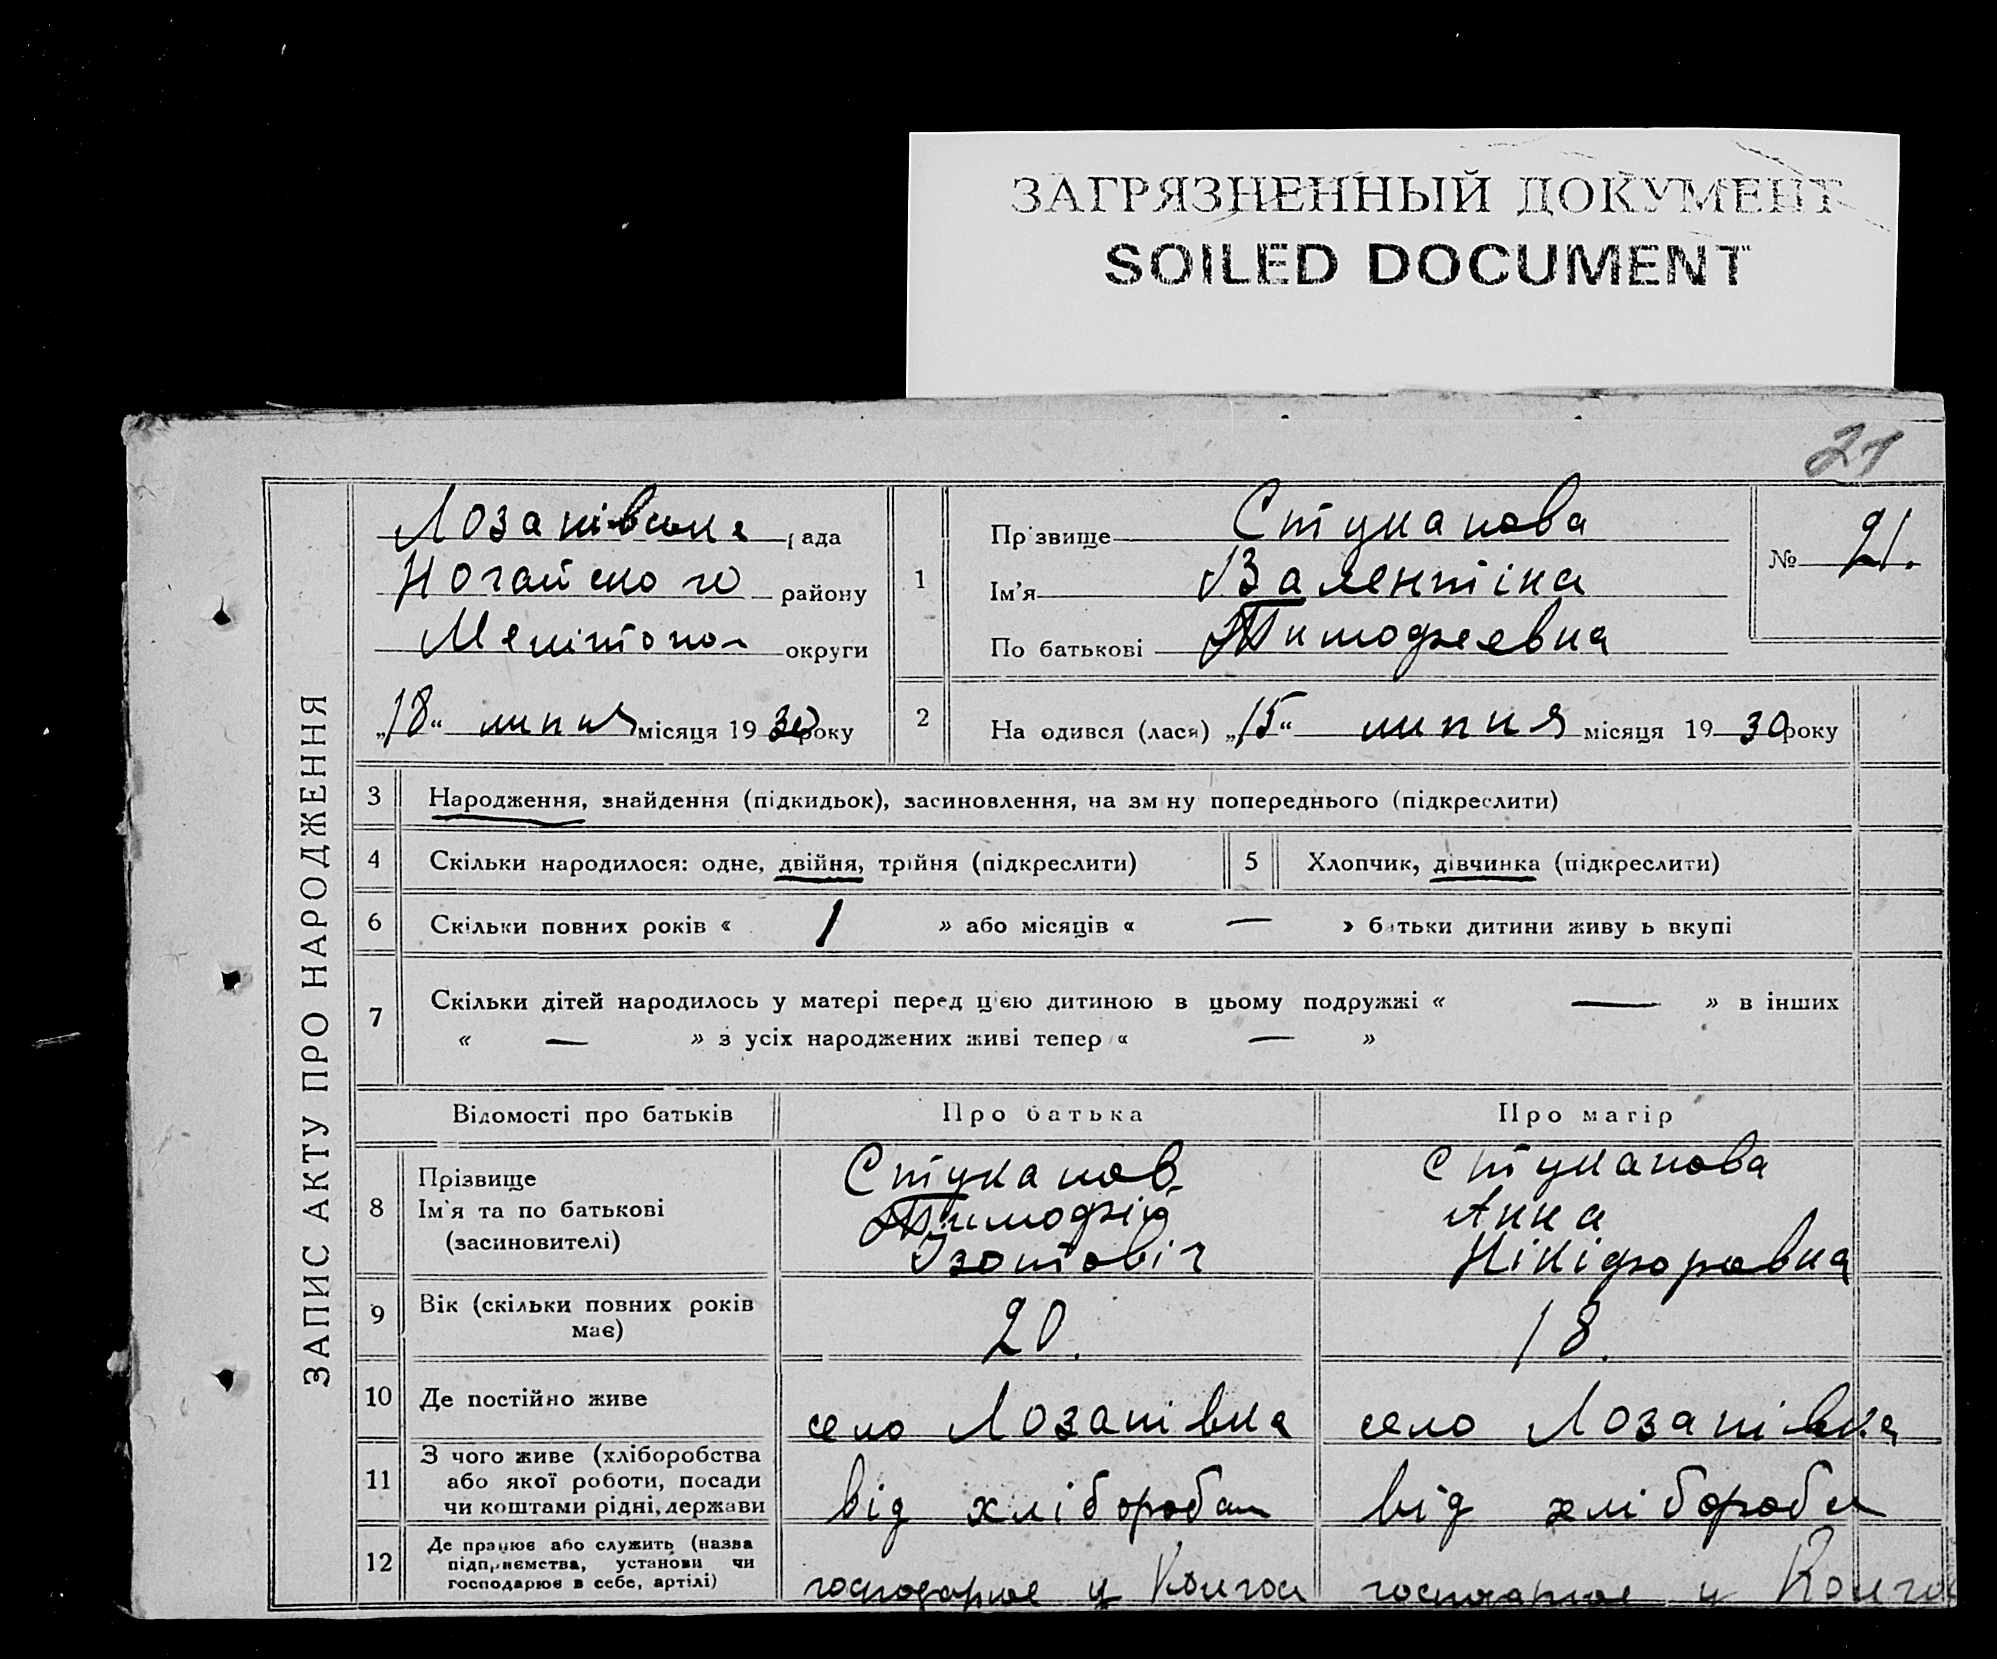 ЗАГРЯЗНЕННЫЙ ДОКУМЕНТ
SOILED DOCUMENT
21
ЗАПИС АКТУ ПРО НАРОДЖЕННЯ
Лозанівська рада
Ногайського району
Мелітопол округи
„18“ липня місяця 1930 року
1
Прізвище Стуканова
Ім'я Валентіна
По батькові Тимофеевна
№ 21.
2
На одився (лася) „15“ липня місяця 1930 року
3 Народження, знайдення (підкидьок), засиновлення, на зм ну попереднього (підкреслити)
4 Скільки народилося: одне, двійня, трійня (підкреслити) 5 Хлопчик, дівчинка (підкреслити)
6 Скільки повних років « 1 » або місяців « — » батьки дитини живу ь вкупі
7 Скільки дітей народилось у матері перед цією дитиною в цьому подружжі « — » в інших
« — » з усіх народжених живі тепер « — »
Відомості про батьків Про батька Про матір
8 Прізвище
Ім'я та по батькові
(засиновителі)
Стуканов
Тимофій
Ізотовіч
Стуканова
Анна
Нікіфоровна
9 Вік (скільки повних років
має)
20. 18.
10 Де постійно живе село Лозанівка село Лозанівка
11 З чого живе (хліборобства
або якої роботи, посади
чи коштами рідні, держави
від хлібороба від хлібороба
12 Де працює або служить (назва
підприємства, установи чи
господарює в себе, артілі)
господарює у Колгос господарює у Колгос